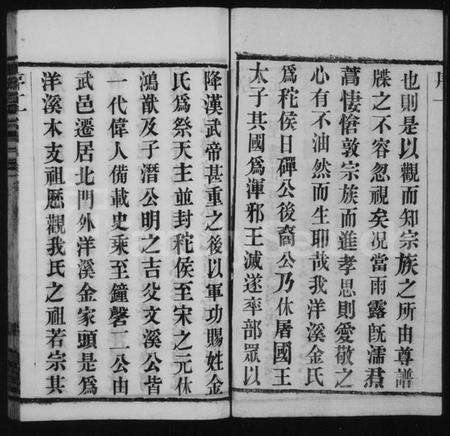 序一
也則是以觀而知宗族之所由尊譜
牒之不容忽視矣况當雨露既濡焄
蒿悽愴敦宗族而進孝思則愛敬之
心有不油然而生耶哉我洋溪金氏
爲秺侯日磾公後裔公乃休屠國王
太子其國爲渾邪王滅遂率部眾以
降漢武帝甚重之後以軍功賜姓金
氏爲祭天主並封秺侯至宋之元休
鴻猷及子潛公明之吉父文溪公皆
一代偉人備載史乘至鐘磬二公由
武邑遷居北門外洋溪金家頭是爲
洋溪木支祖歷觀我氏之祖若宗其
序二